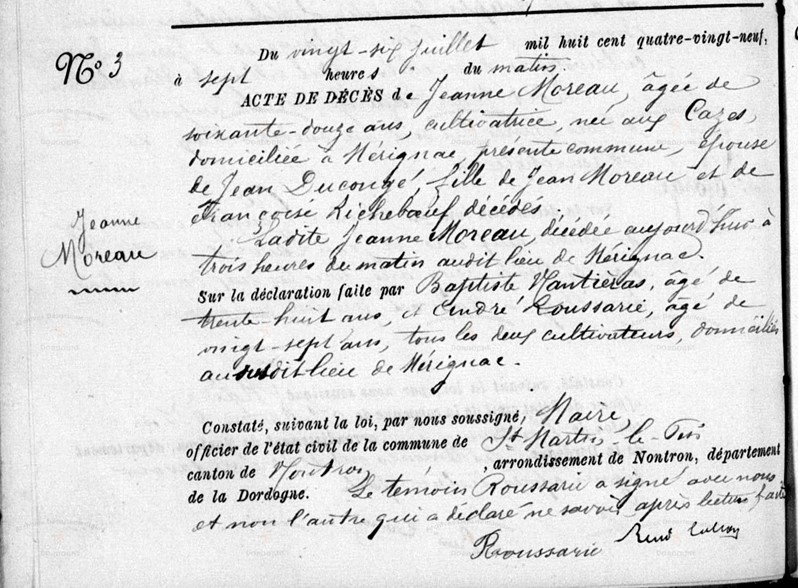 N° 3
Du vingt-six juillet mil huit cent quatre-vingt-neuf,
à sept heures du matin.
ACTE DE DÉCÈS de Jeanne Moreau, âgée de
soixante-douze ans, cultivatrice, née aux Cazes,
domiciliée à Mérignac, présente commune, épouse
de Jean Ducongé, fille de Jean Moreau et de
Françoise Richebœuf, décédés.
Jeanne
Moreau
Ladite Jeanne Moreau, décédée aujourd'hui à
trois heures du matin audit lieu de Mérignac.
Sur la déclaration faite par Baptiste Nantiéras, âgé de
trente-huit ans, et André Roussarie, âgé de
vingt-sept ans, tous les deux cultivateurs, domiciliés
au susdit lieu de Mérignac.
Constaté, suivant la loi, par nous soussigné, Maire
officier de l'état civil de la commune de St Martin-le-Pin
canton de Nontron, arrondissement de Nontron, département
de la Dordogne. Le témoin Roussarie a signé avec nous
et non l'autre qui a déclaré ne savoir après lecture faite
Roussarie René